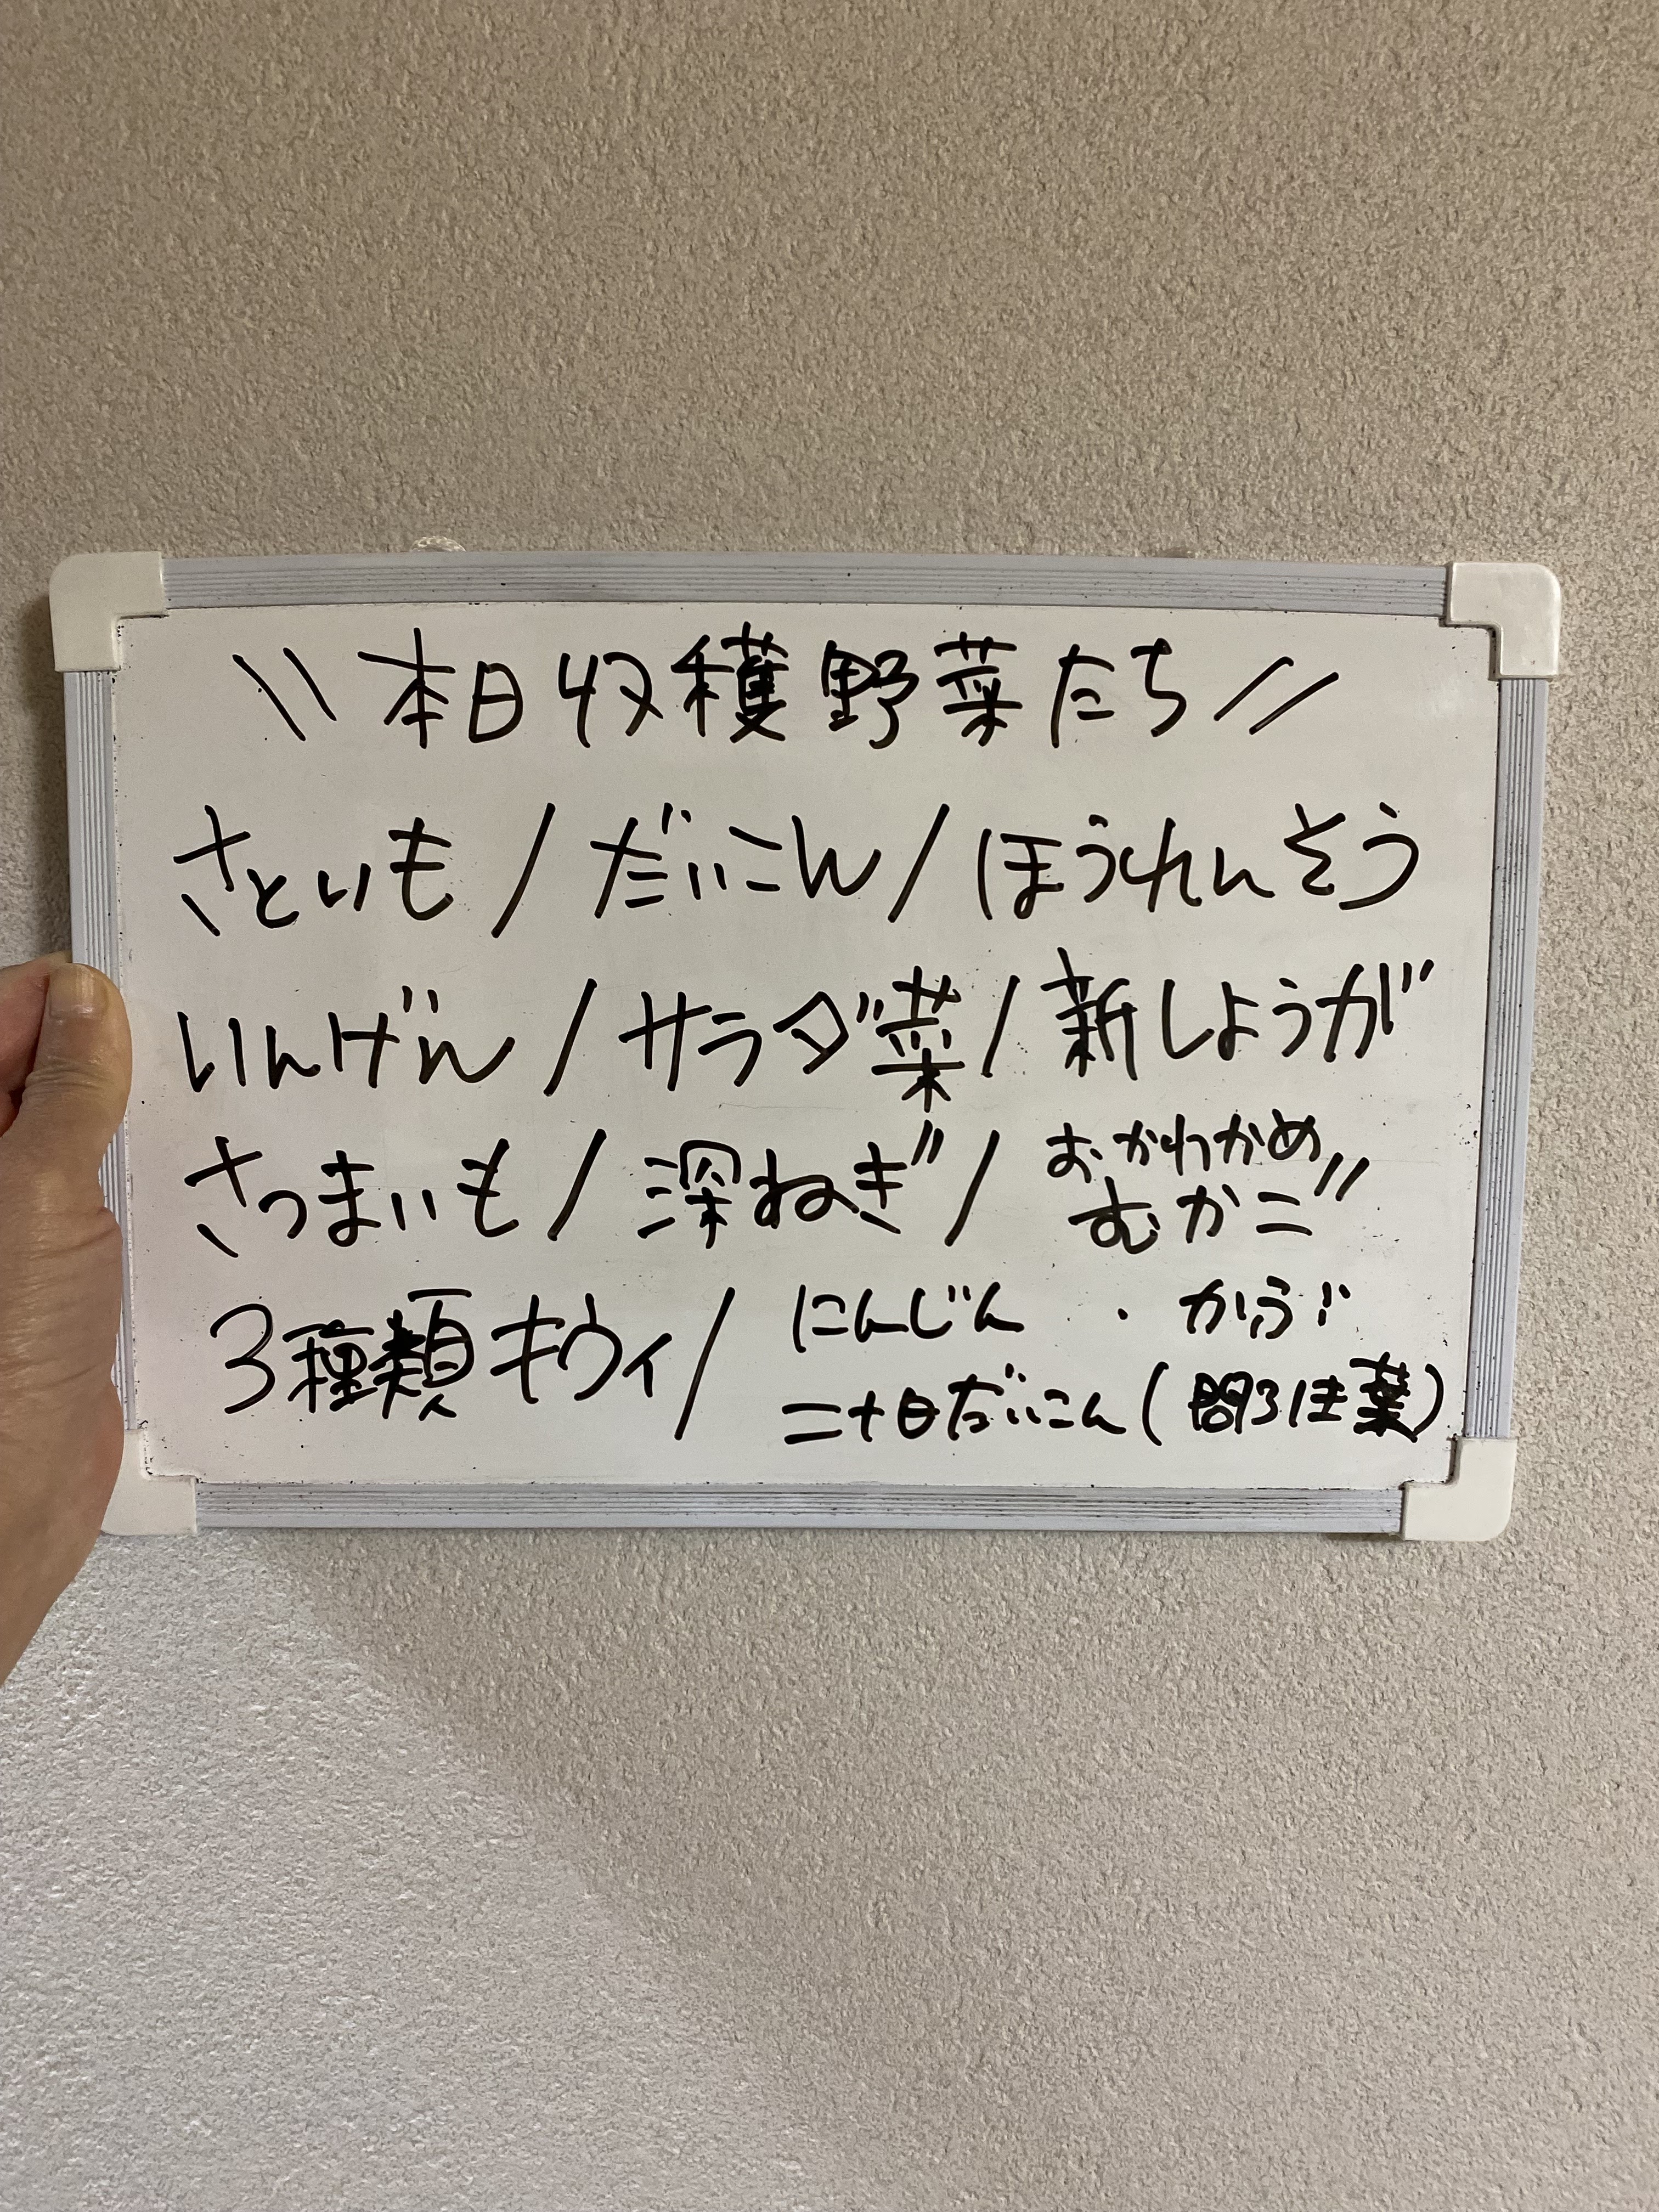 \\ 本日収穫野菜たち //
さといも / だいこん / ほうれんそう
いんげん / サラダ菜 / 新しょうが
さつまいも / 深ねぎ / おかわかめ
むかご
3種類キウイ / にんじん ・ かぶ
二十日だいこん (間引き葉)